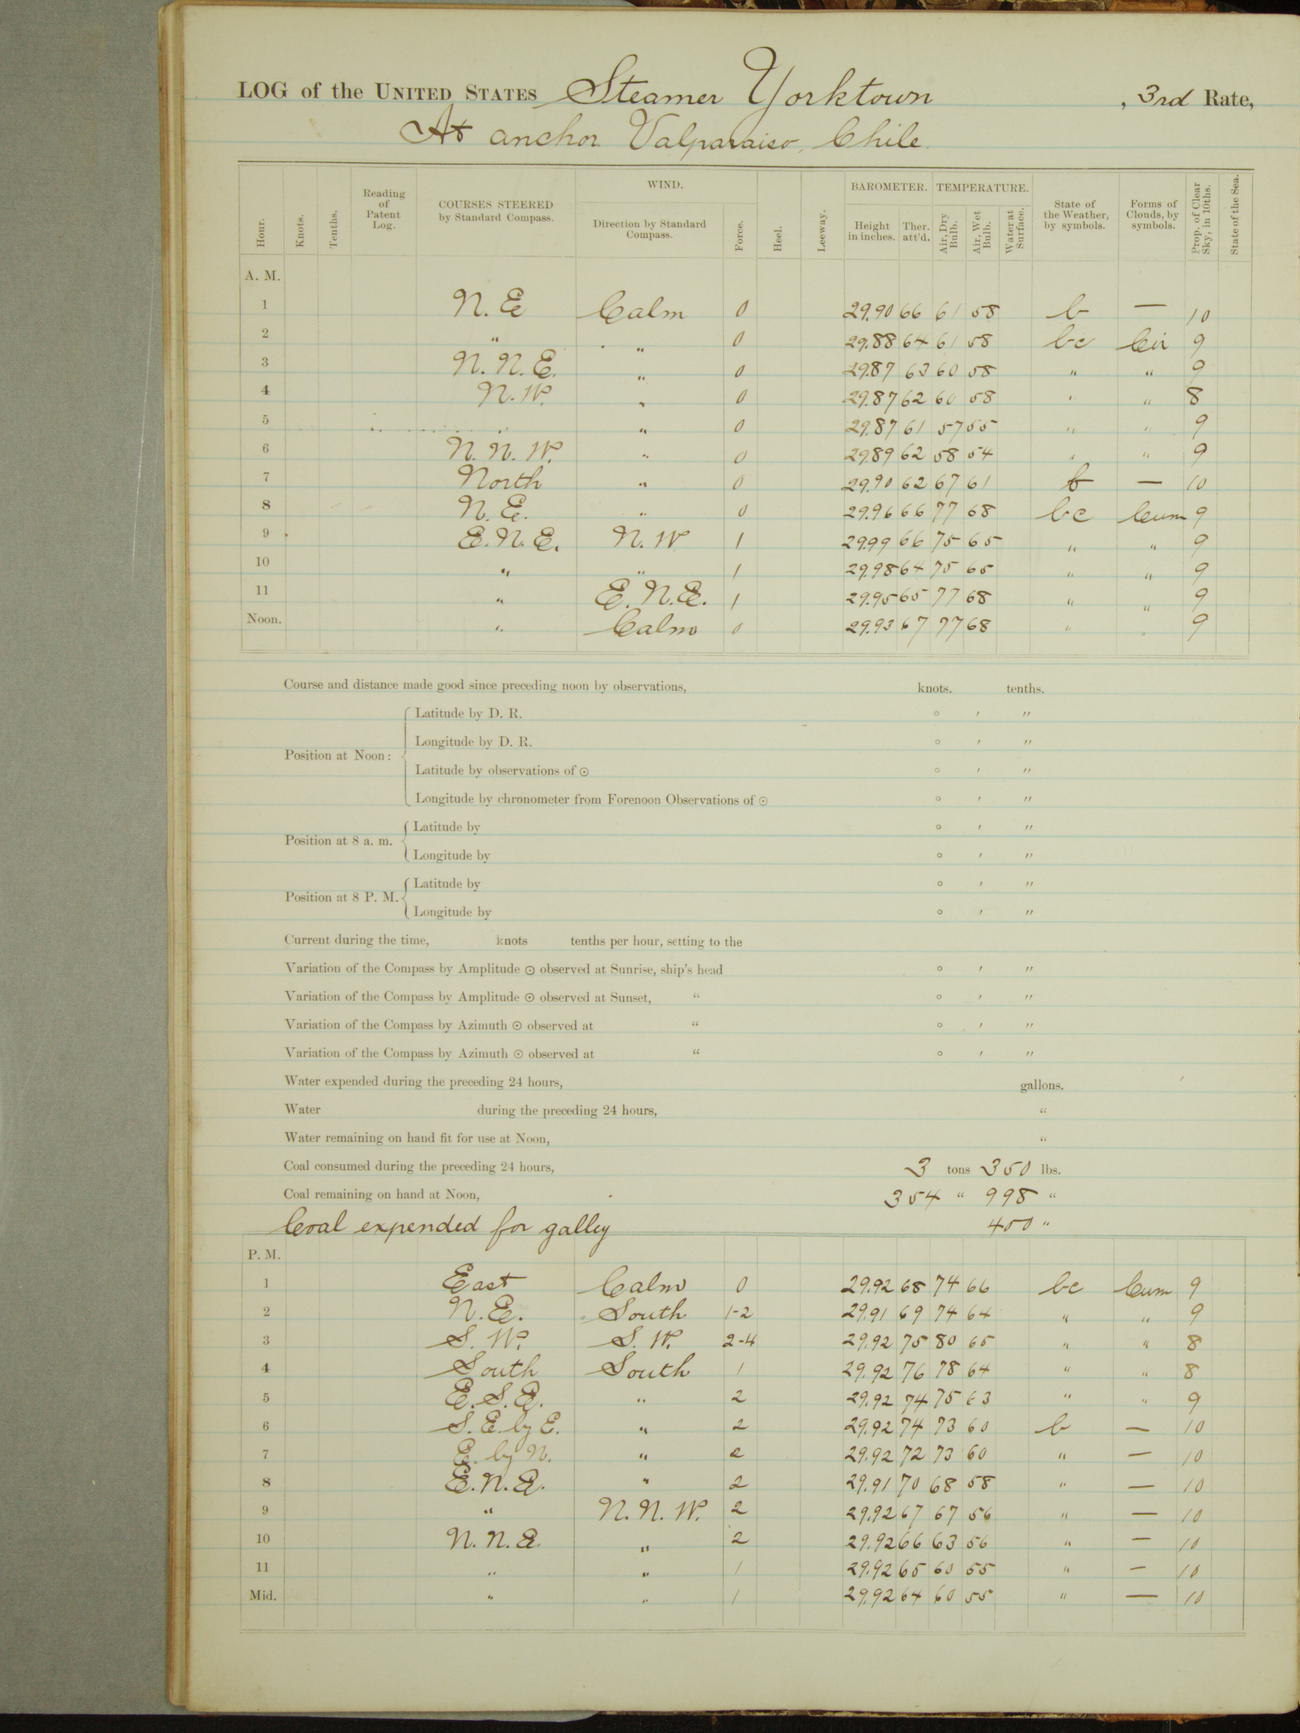 LOG of the UNITED STATES Steamer Yorktown , 3rd Rate,
At anchor Valparaiso, Chile.
Hour. Knots. Tenths. Reading of Patent Log. COURSES STEERED by Standard Compass. WIND. Direction by Standard Compass. Force. Heel. Leeway. BAROMETER. Height in inches. Ther. att'd. TEMPERATURE. Air, Dry Bulb. Air, Wet Bulb. Water at Surface. State of the Weather, by symbols. Forms of Clouds, by symbols. Prop. of Clear Sky, in 10ths. State of the Sea.
A. M.
1 N. E Calm 0 29.90 66 61 58 b — 10
2 " " 0 29.88 64 61 58 bc Cir 9
3 N. N. E. " 0 29.87 63 60 58 " " 9
4 N. W. " 0 29.87 62 60 58 " " 8
5 " " 0 29.87 61 57 55 " " 9
6 N. N. W. " 0 29.89 62 58 54 " " 9
7 North " 0 29.90 62 67 61 b — 10
8 N. E. " 0 29.96 66 77 68 bc Cum 9
9 E. N. E. N. W 1 29.99 66 75 65 " " 9
10 " " 1 29.98 64 75 65 " " 9
11 " E. N. E. 1 29.95 65 77 68 " " 9
Noon. " Calm 0 29.93 67 77 68 " " 9
Course and distance made good since preceding noon by observations, knots. tenths.
Position at Noon: Latitude by D. R. ° ′ ″
Longitude by D. R. ° ′ ″
Latitude by observations of ☉ ° ′ ″
Longitude by chronometer from Forenoon Observations of ☉ ° ′ ″
Position at 8 a. m. Latitude by ° ′ ″
Longitude by ° ′ ″
Position at 8 P. M. Latitude by ° ′ ″
Longitude by ° ′ ″
Current during the time, knots tenths per hour, setting to the
Variation of the Compass by Amplitude ☉ observed at Sunrise, ship's head ° ′ ″
Variation of the Compass by Amplitude ☉ observed at Sunset, " ° ′ ″
Variation of the Compass by Azimuth ☉ observed at " ° ′ ″
Variation of the Compass by Azimuth ☉ observed at " ° ′ ″
Water expended during the preceding 24 hours, gallons.
Water during the preceding 24 hours, "
Water remaining on hand fit for use at Noon, "
Coal consumed during the preceding 24 hours, 3 tons 350 lbs.
Coal remaining on hand at Noon, 354 " 998 "
Coal expended for galley 450 "
P. M.
1 East Calm 0 29.92 68 74 66 bc Cum 9
2 N. E. South 1-2 29.91 69 74 64 " " 9
3 S. W. S. W. 2-4 29.92 75 80 65 " " 8
4 South South 1 29.92 76 78 64 " " 8
5 E. S. E. " 2 29.92 74 75 63 " " 9
6 S. E. by E. " 2 29.92 74 73 60 b — 10
7 E. by N. " 2 29.92 72 73 60 " — 10
8 E. N. E. " 2 29.91 70 68 58 " — 10
9 " N. N. W. 2 29.92 67 67 56 " — 10
10 N. N. E. " 2 29.92 66 63 56 " — 10
11 " " 1 29.92 65 60 55 " — 10
Mid. " " 1 29.92 64 60 55 " — 10